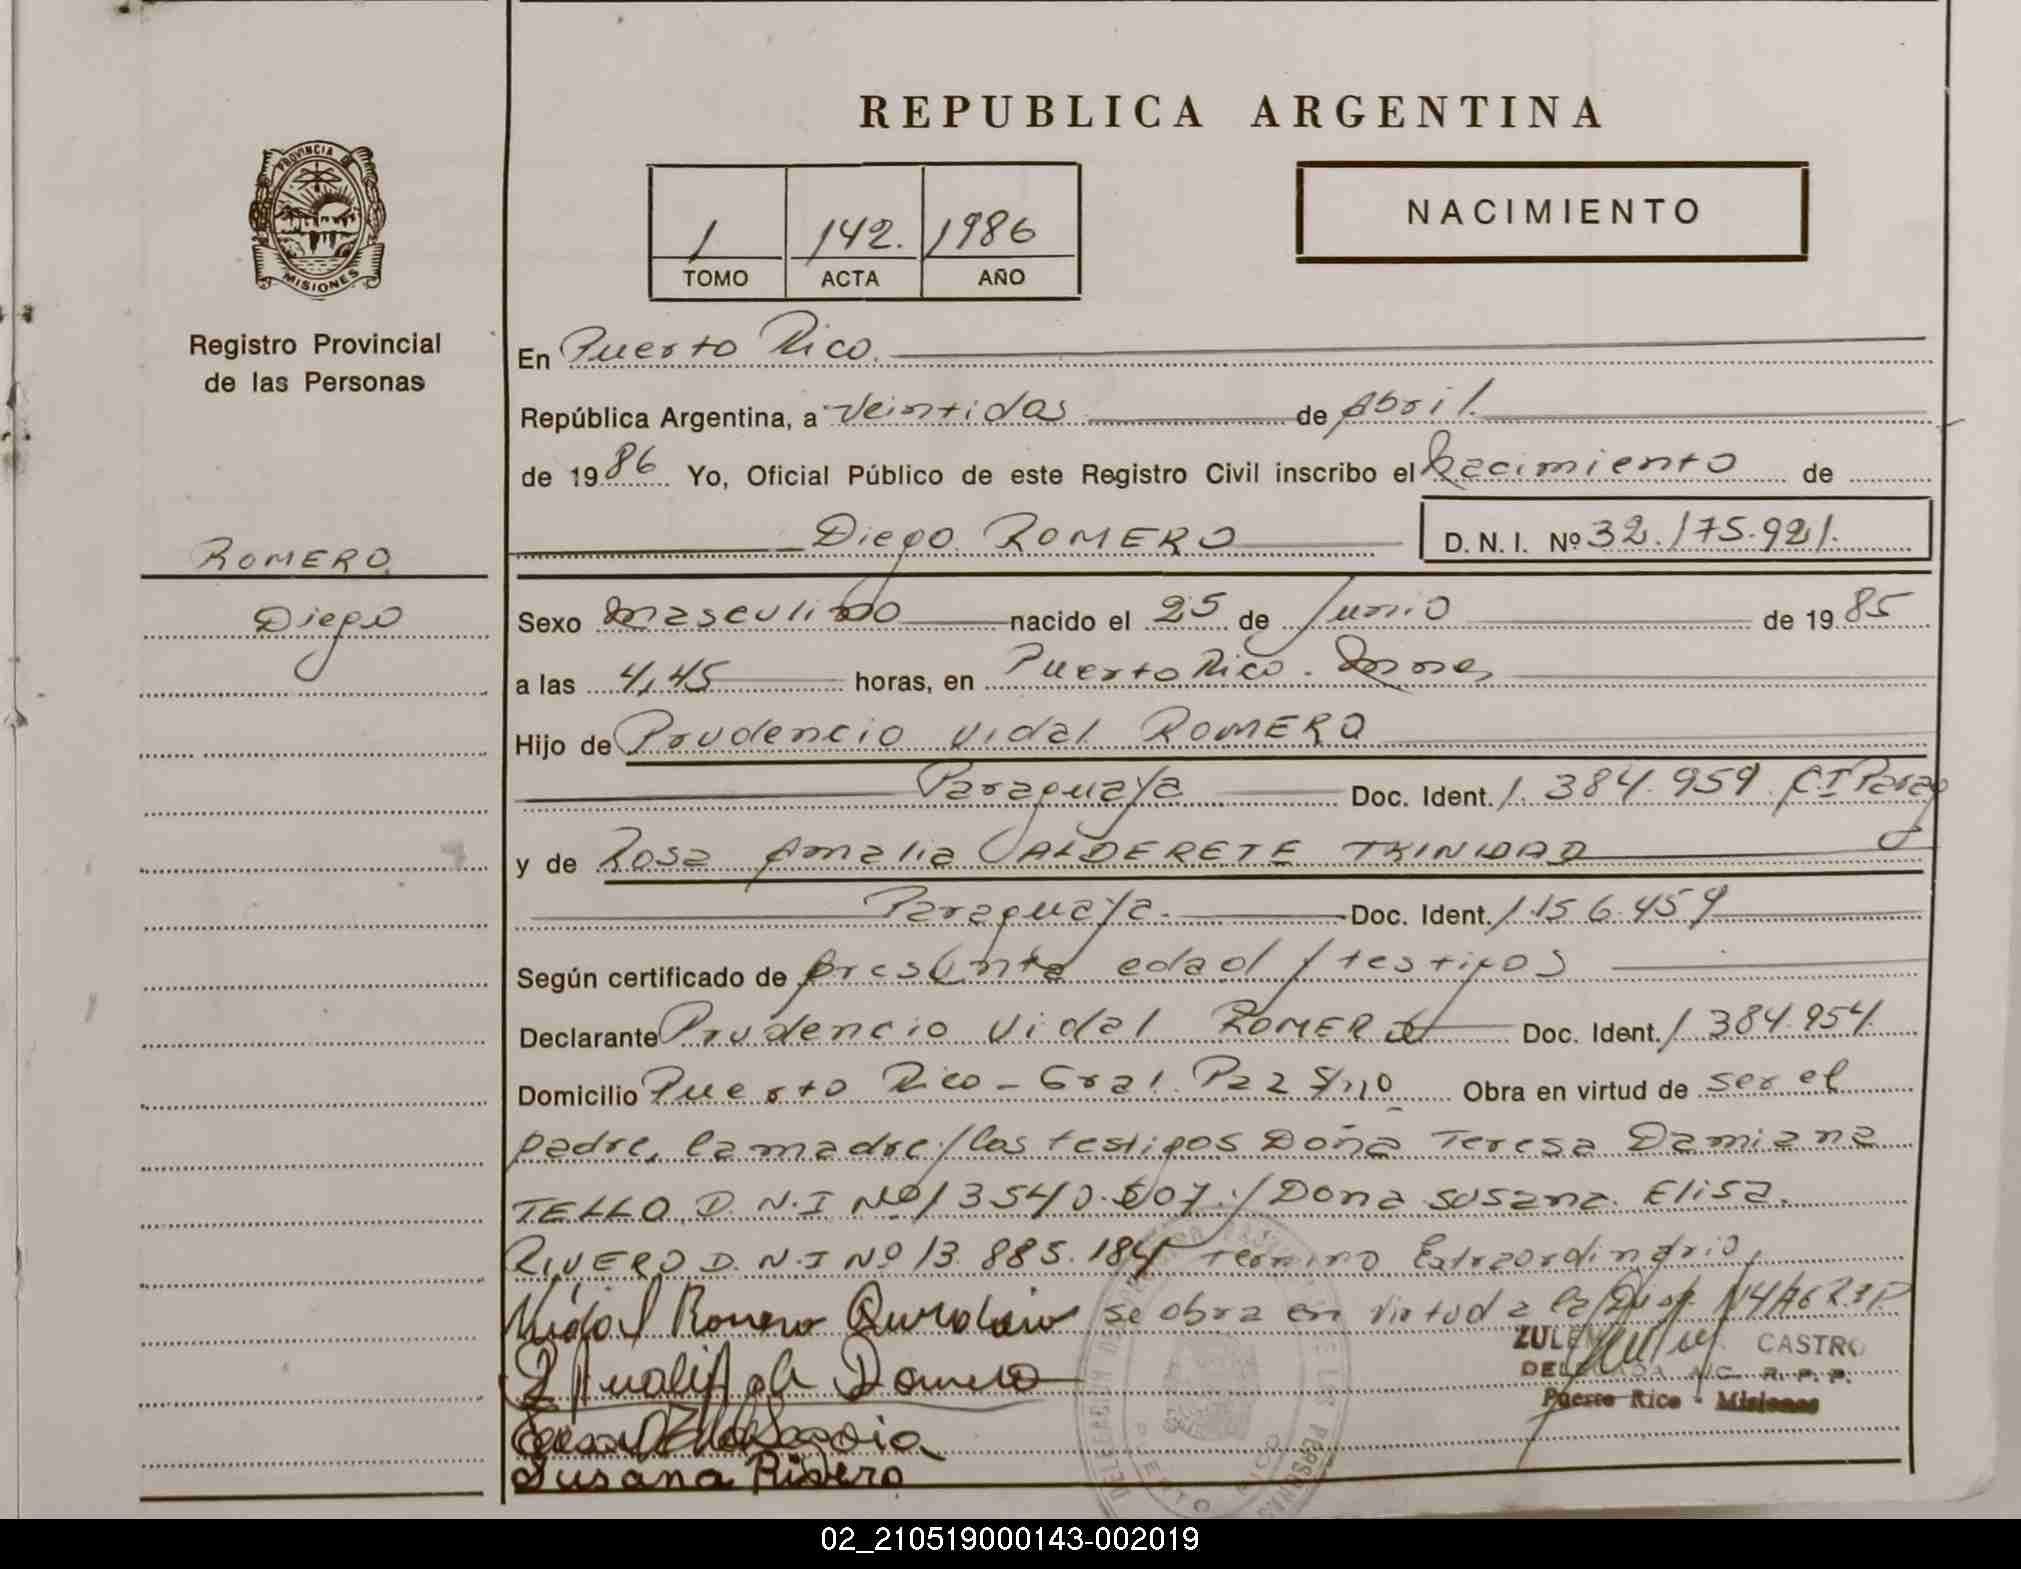 REPUBLICA ARGENTINA
PROVINCIA DE
MISIONES
Registro Provincial
de las Personas
ROMERO
Diego
1 142. 1986
TOMO ACTA AÑO
NACIMIENTO
En Puerto Rico.
República Argentina, a veintidos de Abril.
de 1986 Yo, Oficial Público de este Registro Civil inscribo el Nacimiento de
Diego ROMERO D. N. I. Nº 32.175.921.
Sexo masculino nacido el 25 de Junio de 1985
a las 4,45 horas, en Puerto Rico - Mnes
Hijo de Prudencio Vidal ROMERO
Paraguaya Doc. Ident. 1.384.959 C.I Parag
y de Rosa Amalia VALDERETE TRINIDAD
Paraguaya. Doc. Ident. 1.156.459
Según certificado de presunta edad y testigos
Declarante Prudencio Vidal ROMERO Doc. Ident. 1.384.954
Domicilio Puerto Rico - Gral. Paz S/nº Obra en virtud de ser el
padre, la madre y los testigos Doña Teresa Damiana
TELLO D.N.I Nº 13540.607 y Doña Susana Elisa
RIVERO D.N.I Nº 13.885.184 Termino Extraordinario,
se obra en virtud a la Disp. 114/76 R.P
Romero
CASTRO
R. P. P.
Puerto Rico - Misiones
Susana Rivero
02_210519000143-002019